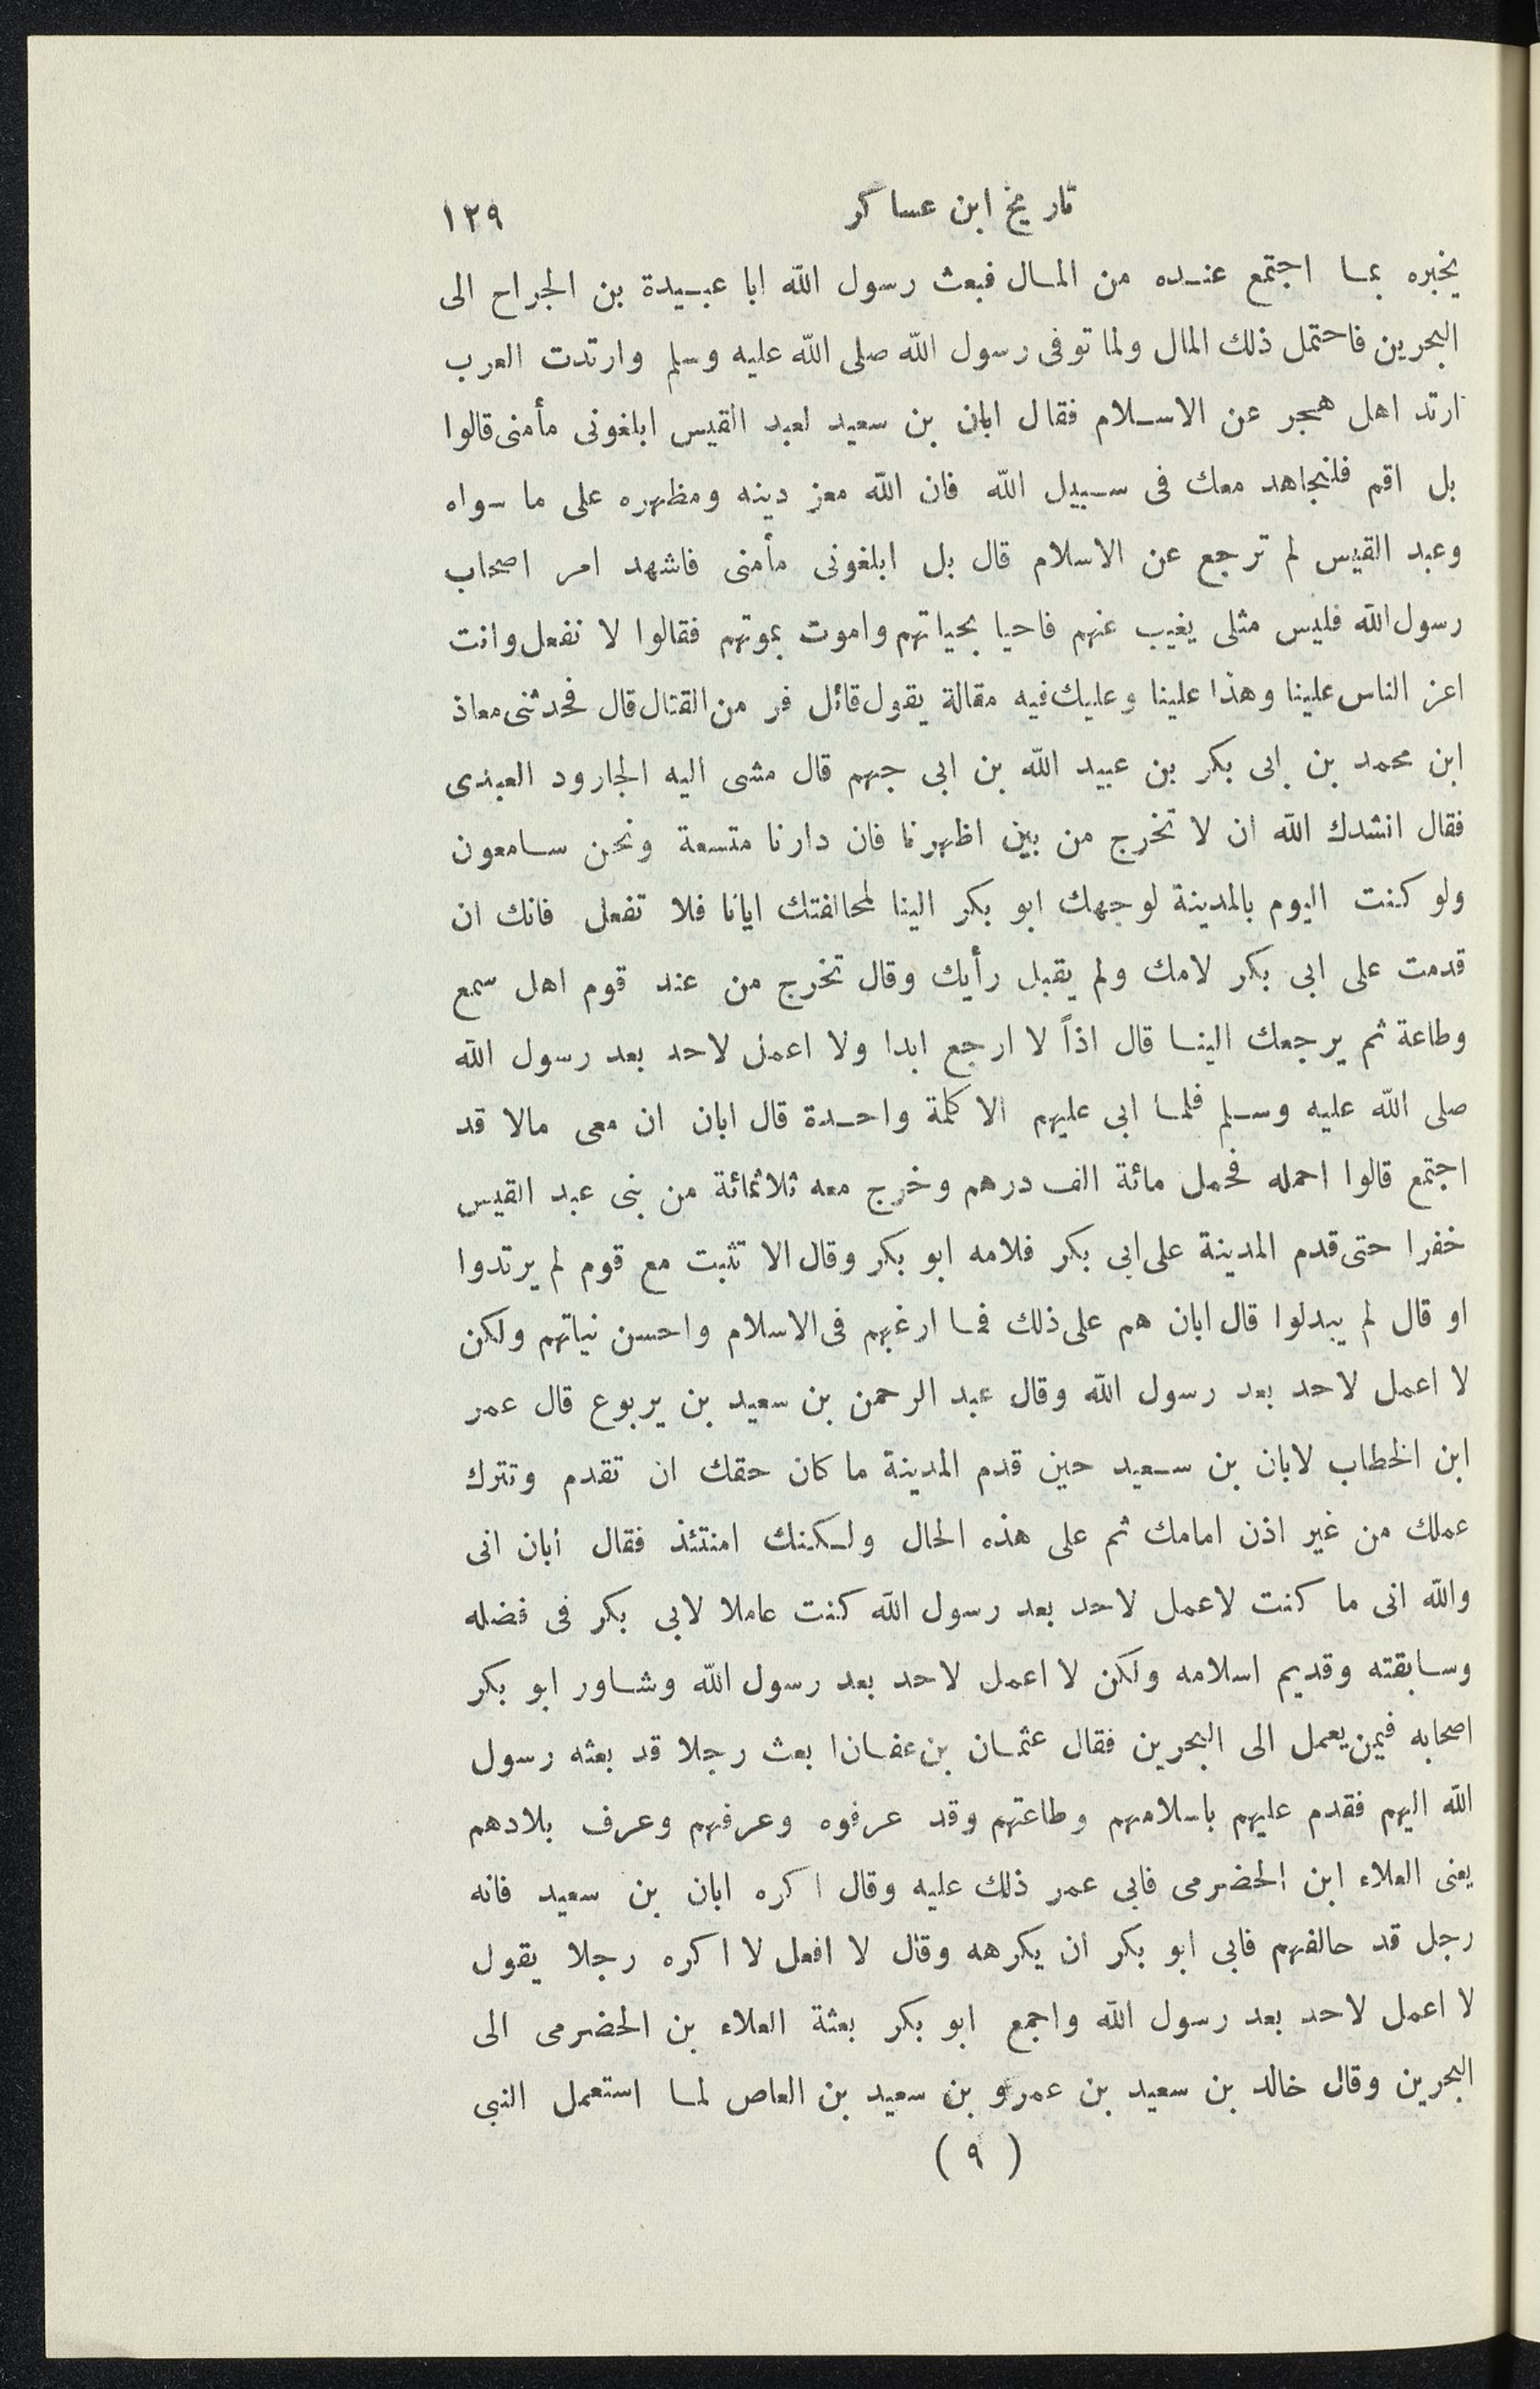 تاريخ ابن عساكر
١٢٩
يخبره بما اجتمع عنده من المال فبعث رسول الله ابا عبيدة بن الجراح الى
البحرين فاحتمل ذلك المال ولما توفى رسول الله صلى الله عليه وسلم وارتدت العرب
ارتد اهل هجر عن الاسلام فقال ابان بن سعيد لعبد القيس ابلغونى مأمنى قالوا
بل اقم فلنجاهد معك فى سبيل الله فان الله معز دينه ومظهره على ما سواه
وعبد القيس لم ترجع عن الاسلام قال بل ابلغونى مأمنى فاشهد امر اصحاب
رسول الله فليس مثلى يغيب عنهم فاحيا بحياتهم واموت بموتهم فقالوا لا نفعل وانت
اعز الناس علينا وهذا علينا وعليك فيه مقالة يقول قائل فر من القتال قال فحدثنى معاذ
ابن محمد بن ابى بكر بن عبيد الله بن ابى جهم قال مشى اليه الجارود العبدى
فقال انشدك الله ان لا تخرج من بين اظهرنا فان دارنا متسعة ونحن سامعون
ولو كنت اليوم بالمدينة لوجهك ابو بكر الينا لمحالفتك ايانا فلا تفعل فانك ان
قدمت على ابى بكر لامك ولم يقبل رأيك وقال تخرج من عند قوم اهل سمع
وطاعة ثم يرجعك الينا قال اذاً لا ارجع ابدا ولا اعمل لاحد بعد رسول الله
صلى الله عليه وسلم فلما ابى عليهم الا كلمة واحدة قال ابان ان معى مالا قد
اجتمع قالوا احمله فحمل مائة الف درهم وخرج معه ثلاثمائة من بنى عبد القيس
خفرا حتى قدم المدينة على ابى بكر فلامه ابو بكر وقال الا تثبت مع قوم لم يرتدوا
او قال لم يبدلوا قال ابان هم على ذلك فما ارغبهم فى الاسلام واحسن نياتهم ولكن
لا اعمل لاحد بعد رسول الله وقال عبد الرحمن بن سعيد بن يربوع قال عمر
ابن الخطاب لابان بن سعيد حين قدم المدينة ما كان حقك ان تقدم وتترك
عملك من غير اذن امامك ثم على هذه الحال ولكنك امنتئذ فقال ابان انى
والله انى ما كنت لاعمل لاحد بعد رسول الله كنت عاملا لابى بكر فى فضله
وسابقته وقديم اسلامه ولكن لا اعمل لاحد بعد رسول الله وشاور ابو بكر
اصحابه فيمن يعمل الى البحرين فقال عثمان بن عفان ابعث رجلا قد بعثه رسول
الله اليهم فقدم عليهم باسلامهم وطاعتهم وقد عرفوه وعرفهم وعرف بلادهم
يعنى العلاء ابن الحضرمى فابى عمر ذلك عليه وقال اكره ابان بن سعيد فانه
رجل قد حالفهم فابى ابو بكر ان يكرهه وقال لا افعل لا اكره رجلا يقول
لا اعمل لاحد بعد رسول الله واجمع ابو بكر بعثة العلاء بن الحضرمى الى
البحرين وقال خالد بن سعيد بن عمرو بن سعيد بن العاص لما استعمل النبى
( ٩ )